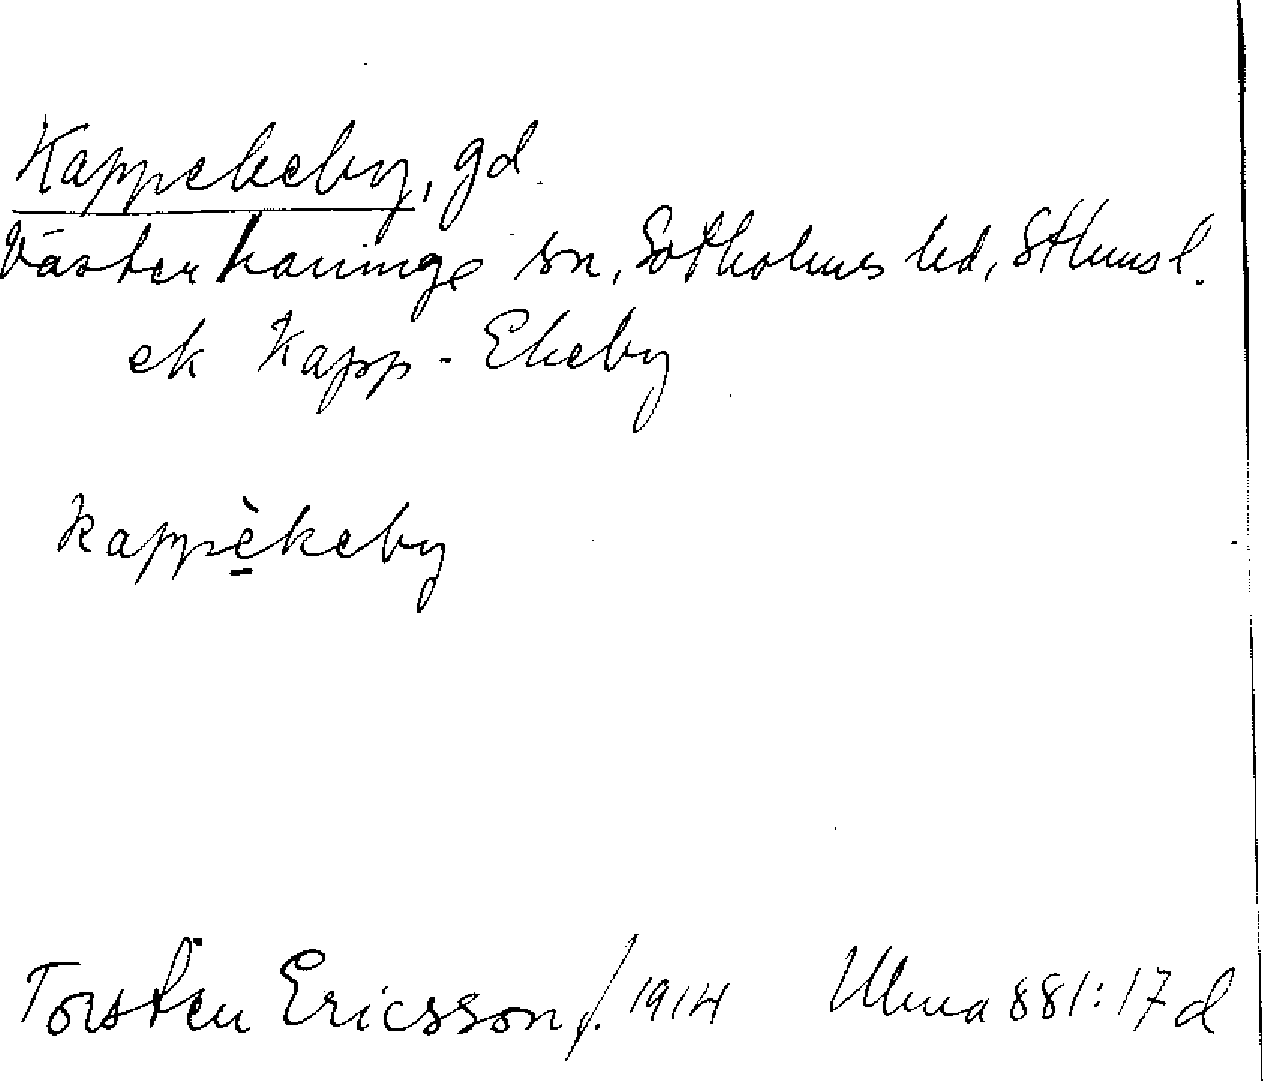 Kappekeby, gd.
Västerhaninge sn, Sotholms hd, Sthmsl.
ek Kapp-Ekeby
kappèkeby
Torsten Ericsson f. 1914 Ulma 881:17 d